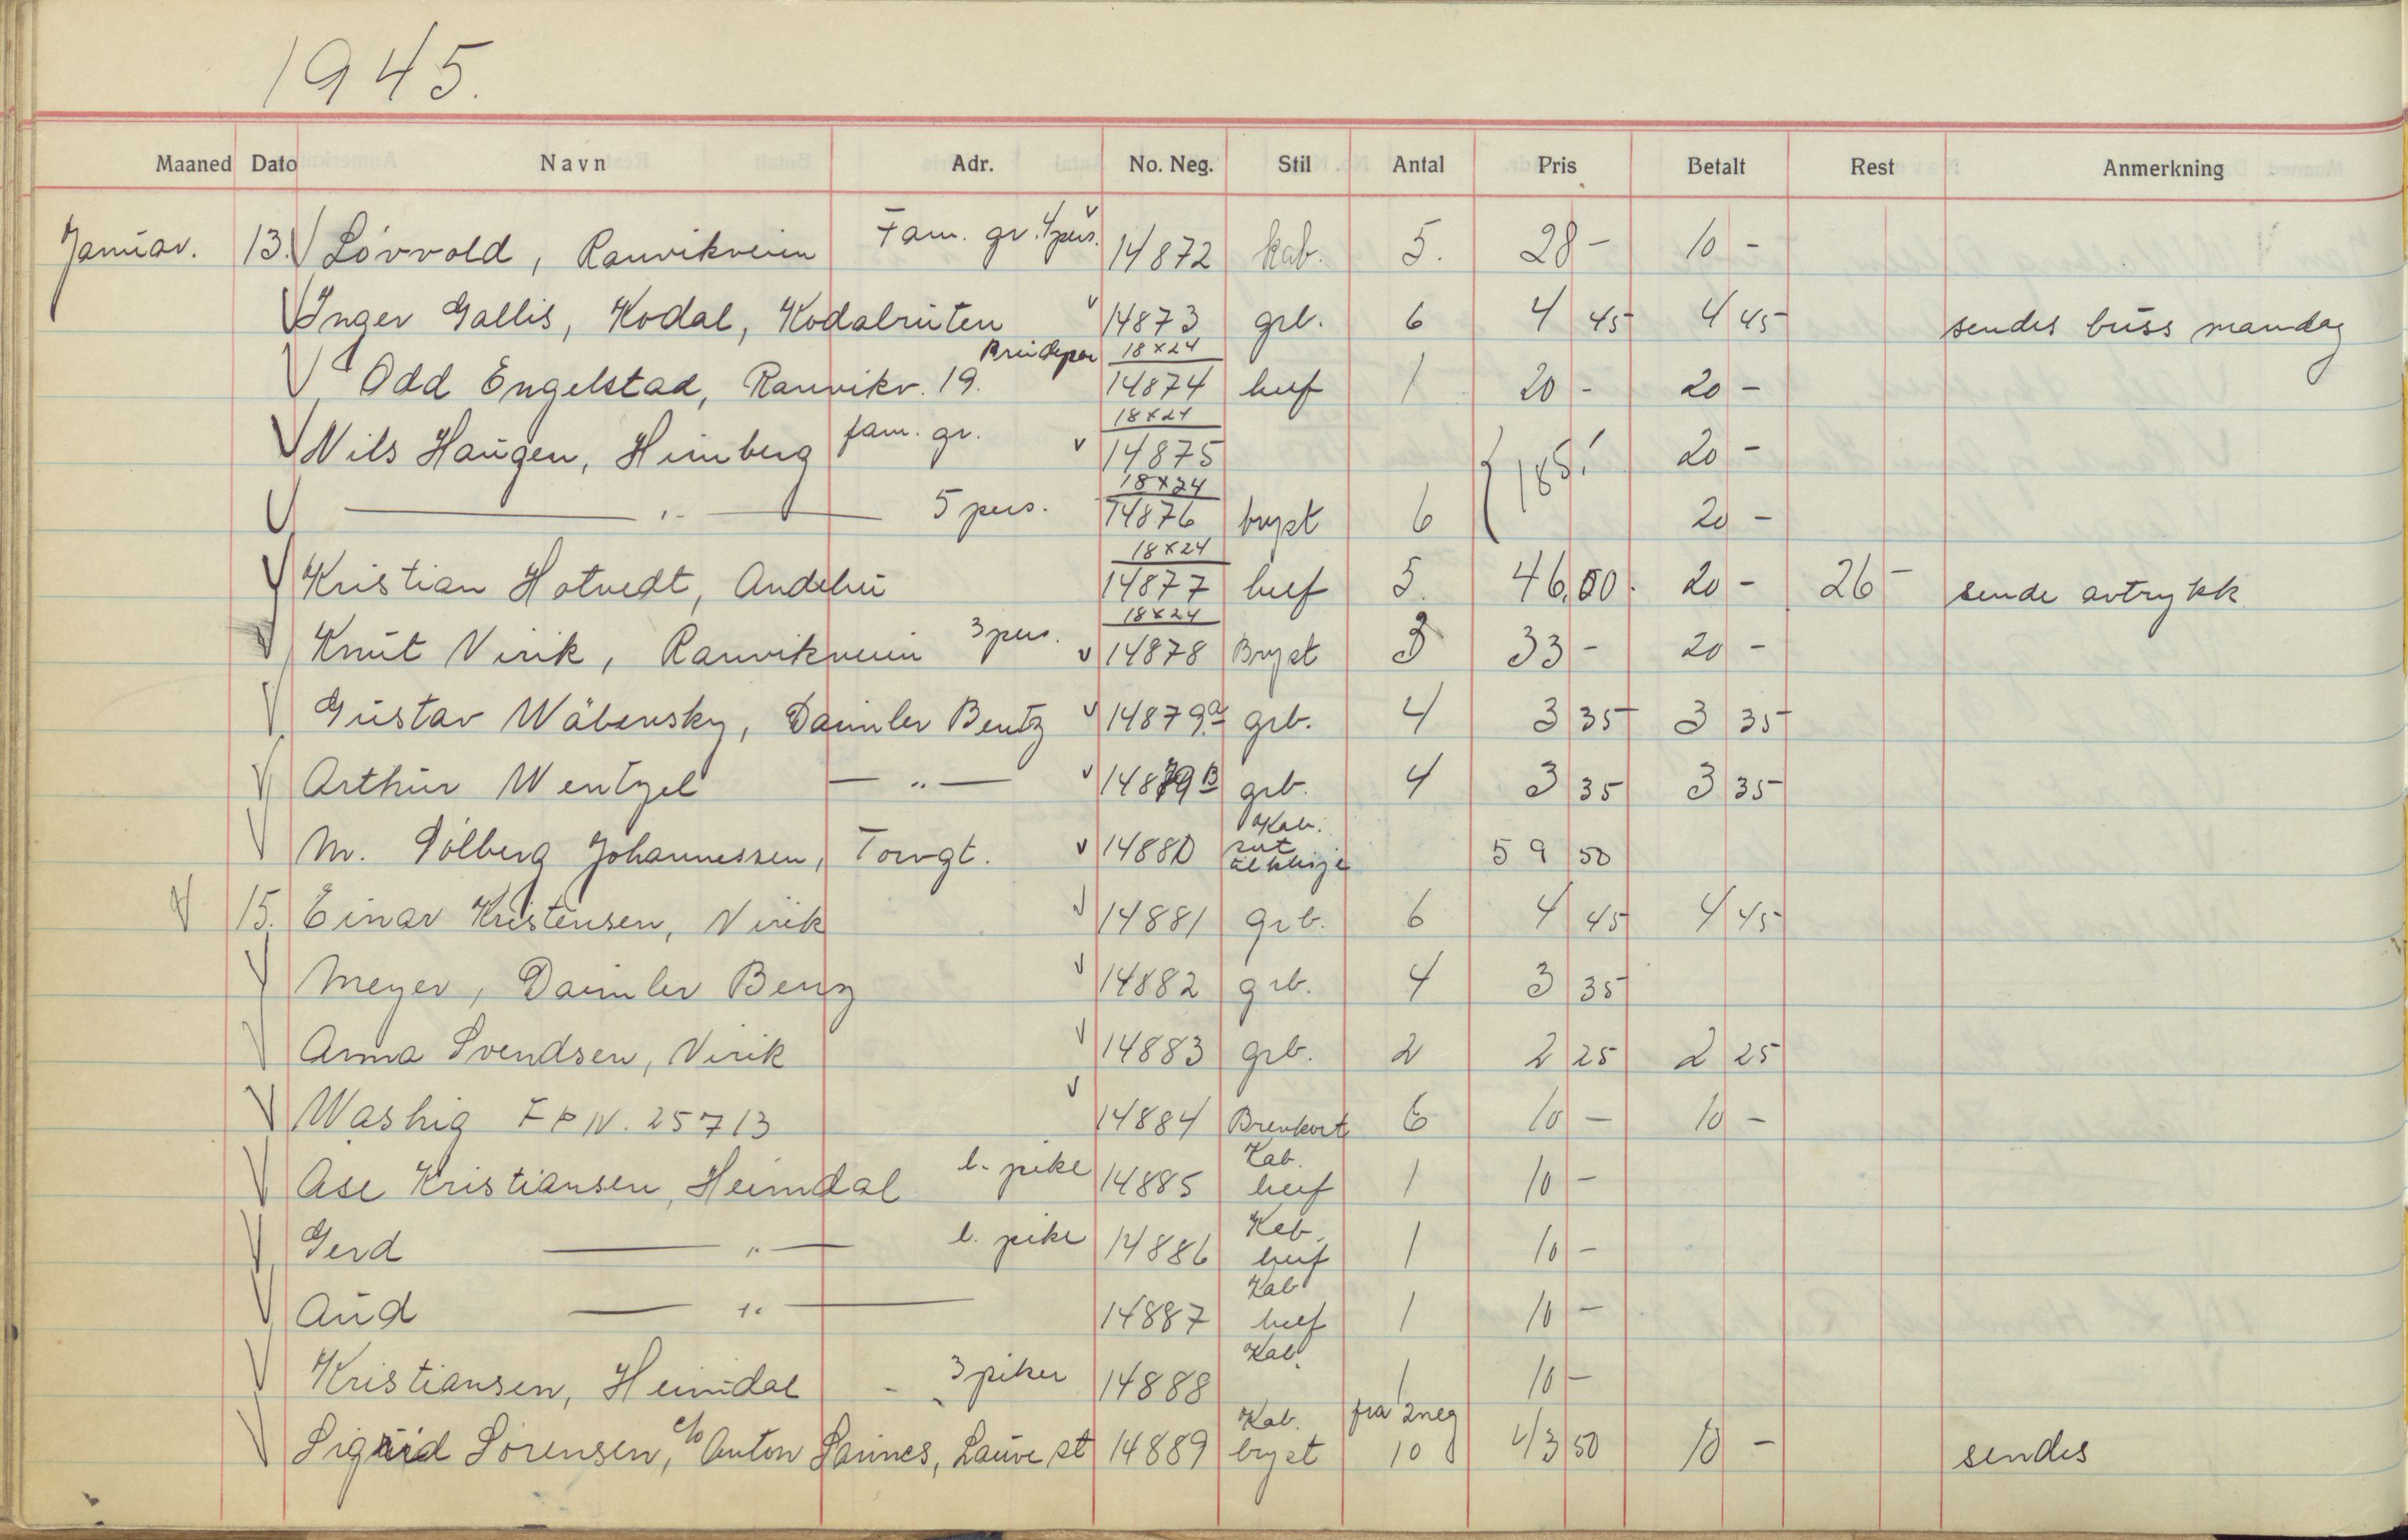 1945.
Maaned Dato Navn Adr. No. Neg. Stil Antal Pris Betalt Rest Anmerkning
Januar. 13. Lövvold, Ranvikveien Fam. gr. 4 pers. 14872 kab. 5. 28 - 10 -
Inger Gallis, Kodal, Kodalruten 14873 grb. 6 4 45 4 45 sendes buss mandag
Brudepar 18x24
Odd Engelstad, Ranvikv. 19. 14874 helf 1 20 - 20 -
18x24
Nils Haugen, Himberg fam. gr. 14875 { 185.' 20 -
18x24
— " — 5 pers. 14876 bryst 6 20 -
18x24
Kristian Hotvedt, Andebu 14877 helf 5. 46,00. 20 - 26 - sende avtrykk
18x24
Knut Virik, Ranvikveien 3 pers. 14878 Bryst 3 33 - 20 -
Gustav Wäbensky, Daimler Bentz 14879a grb. 4 3 35 3 35
Arthur Wentzel — " — 14879B grb. 4 3 35 3 35
Kab.
M. Sólberg Johannessen, Torvgt. 14880 59 50
15. Einar Kristensen, Virik 14881 grb. 6 4 45 4 45
Meyer, Daimler Benz 14882 grb. 4 3 35
Anna Svendsen, Virik 14883 grb. 2 2 25 2 25
Washig FPN. 25713 14884 Brevkort 6 10 — 10 -
Kab.
Åse Kristiansen, Heimdal l. pike 14885 helf 1 10 -
Kab.
Gerd — " — l. pike 14886 helf 1 10 -
Kab
Aud — " — 14887 helf 1 10 -
Kab.
Kristiansen, Heimdal - 3 piker 14888 1 10 -
Kab. fra 2 neg
Sigrid Sörensen, c/o Anton Sannes, Lauve st 14889 bryst 10 43 50 10 - sendes